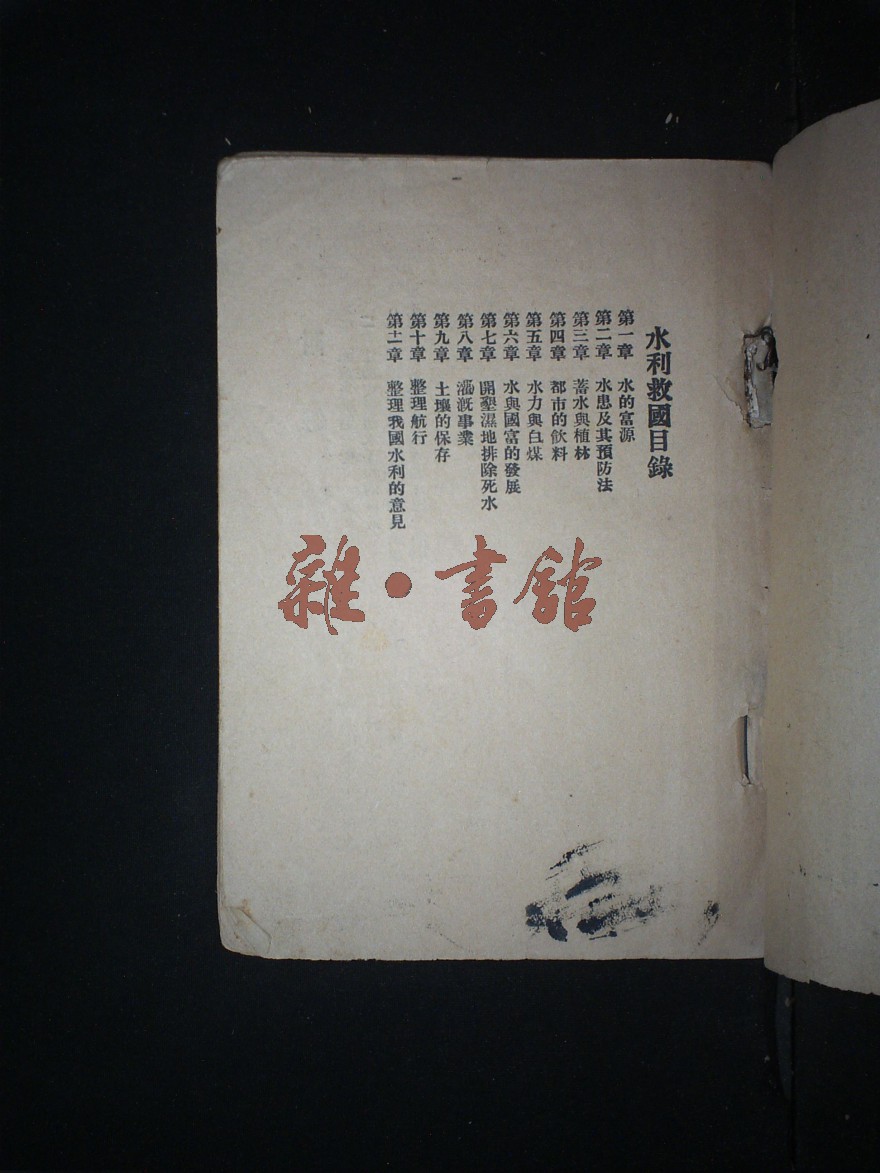 水利救國目錄
第一章 水的富源
第二章 水患及其預防法
第三章 蓄水與植林
第四章 都市的飲料
第五章 水力與白煤
第六章 水與國富的發展
第七章 開墾濕地排除死水
第八章 灌漑事業
第九章 土壤的保存
第十章 整理航行
第十一章 整理我國水利的意見
雜·書館